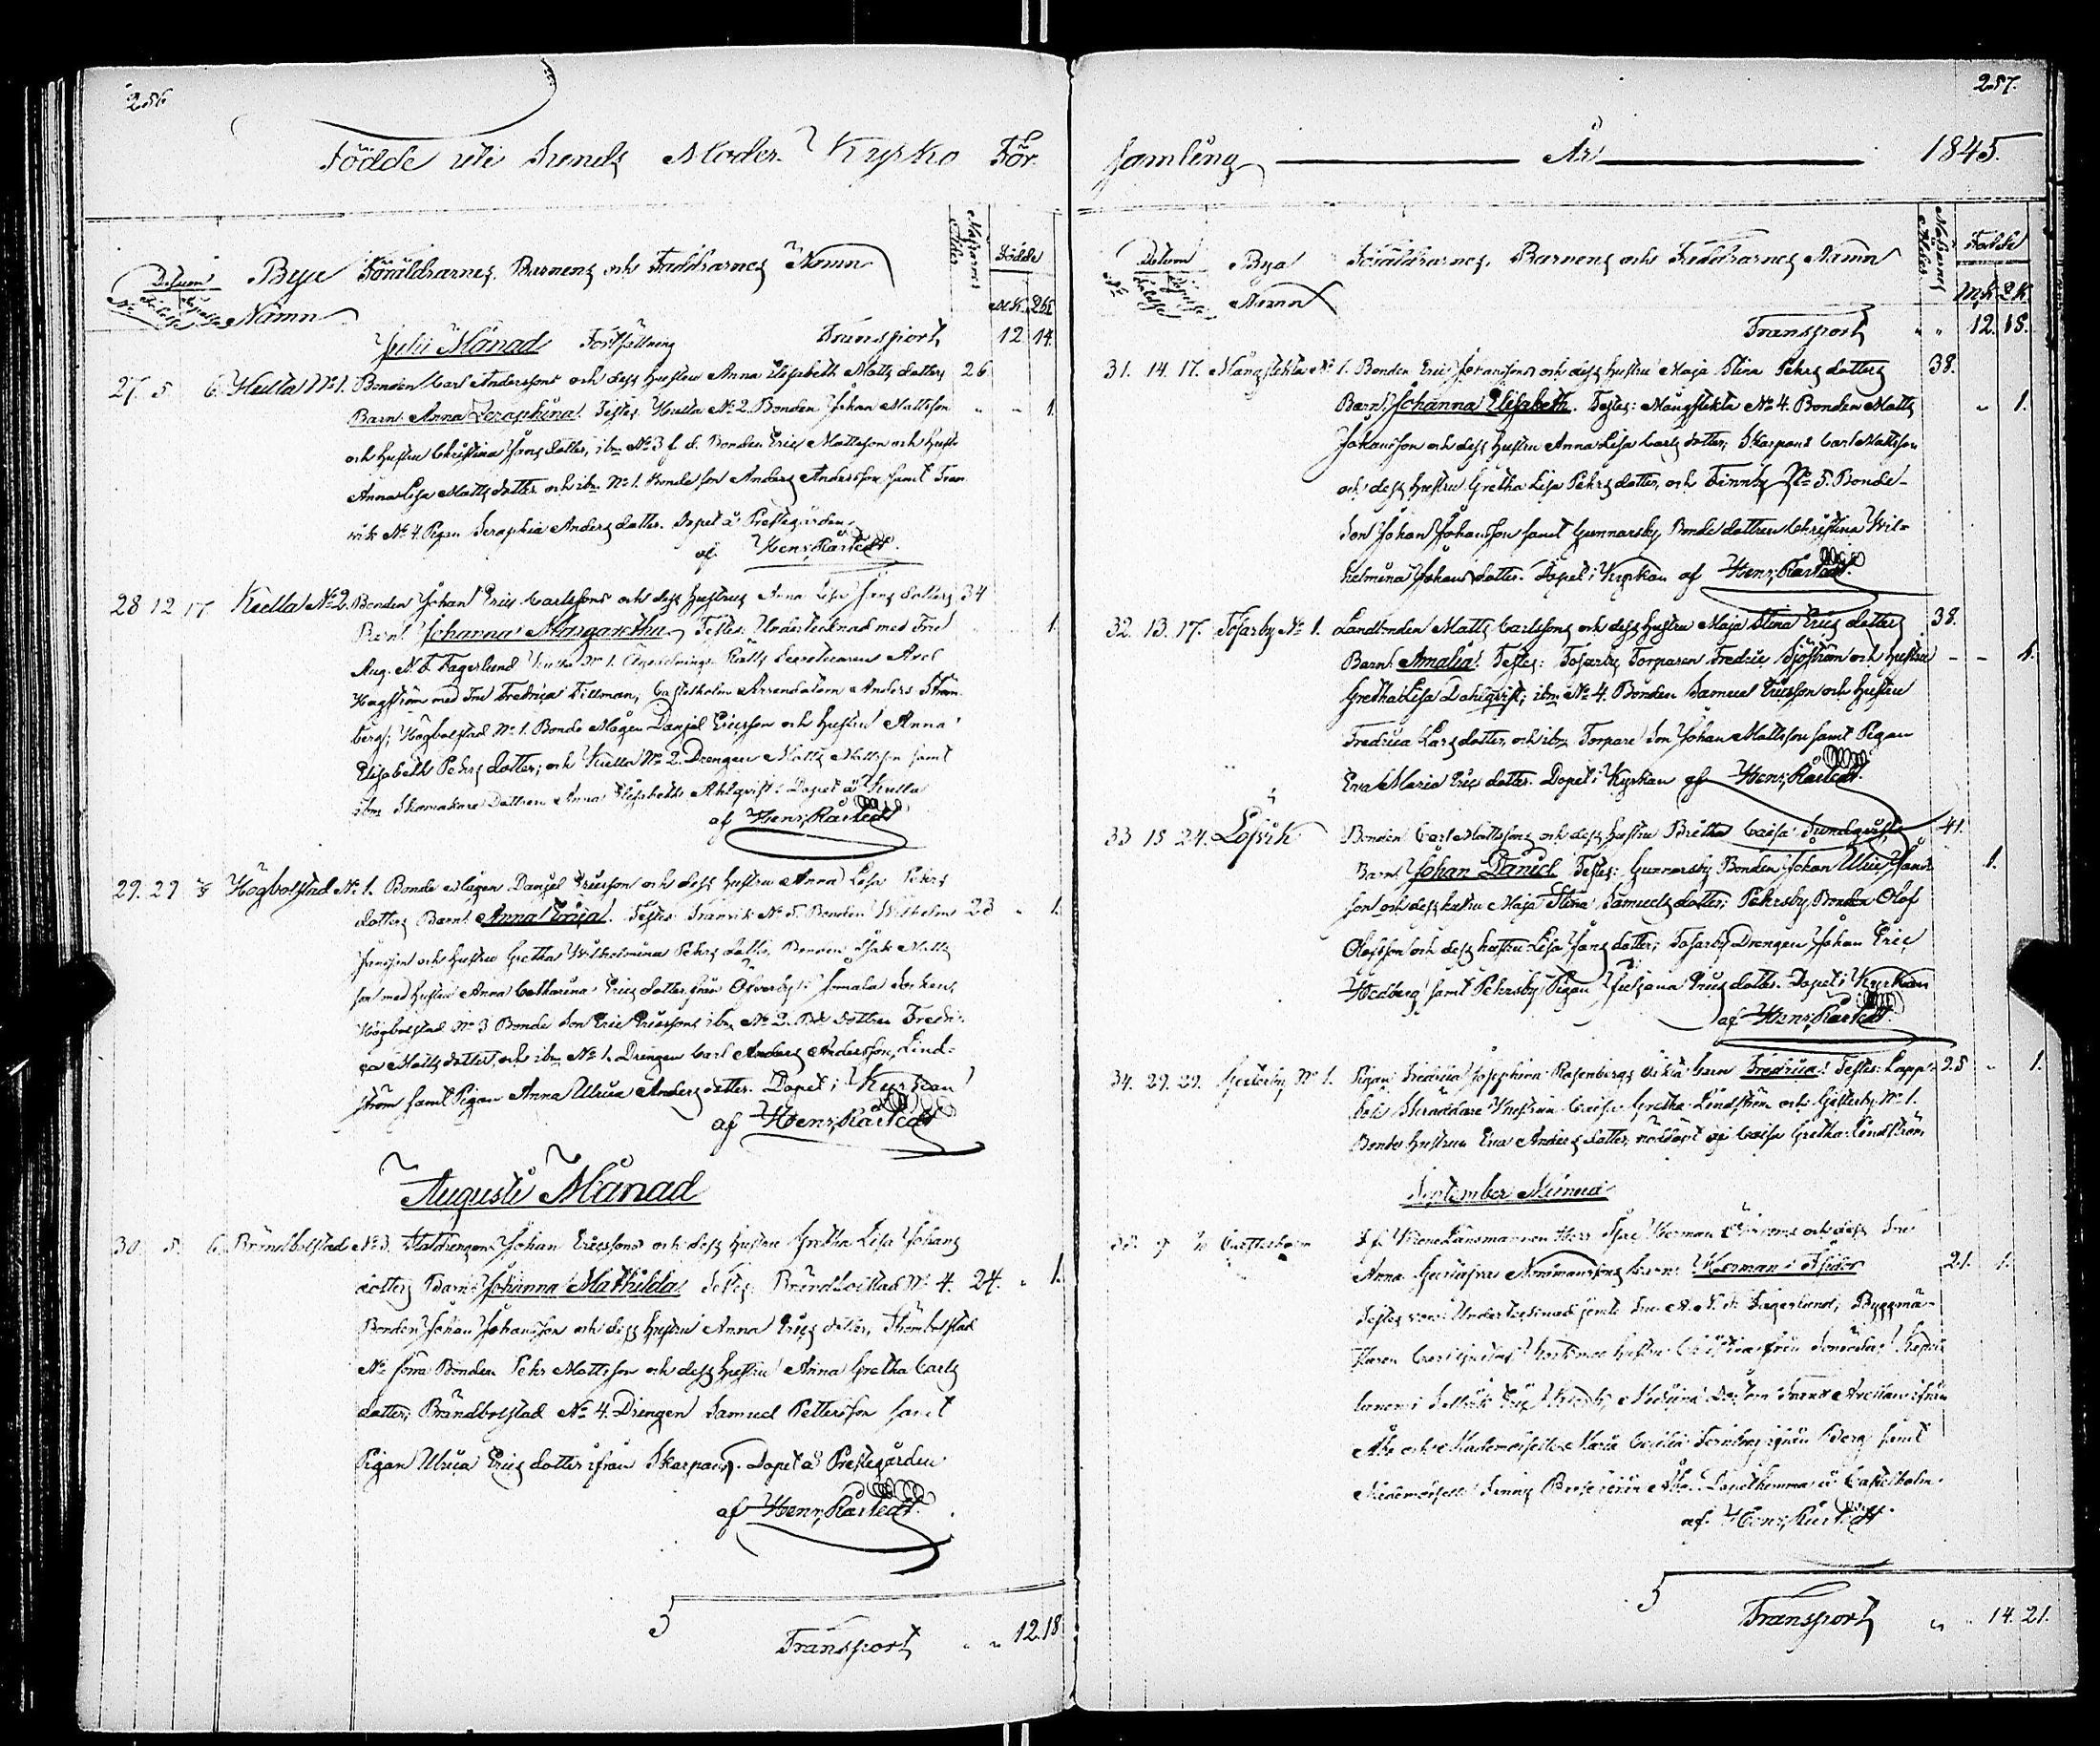 256
Födde uti Sunds Moder Kyrko För.
Datum
No
Födelse
Byar
Namn
Föräldrarnes, Barnens och Faddrarnes Namn
Mödrarnes Ålder
Födde
M.K. Q.K.
Julii Månad Fortsättning Transport 12 14.
27. 5 6. Kulla No 1. Bonden Carl Anderssons och dess hustru Anna Elisabeth Matts dotters 26
Barn: Anna Seraphina. Testes: Kulla No 2. Bonden Johan Mattsson 1.
och hustru Christina Jans dotter, ibm No 3 Bonden Eric Mattsson och hustr.
Anna Lisa Matts dotter och ibm No 1. Bonde son Anders Andersson samt Tran-
vik No 4. Pigan Seraphia Anders dotter. Döpet å Prestegården
af Henr. Råstedt.
28 12 17. Kulla No 2. Bonden Johan Eric Carlssons och dess hustrus Anna Lisa Jans dotters 34
Barn: Johanna Margaretha. Testes: Undertecknad med Fru 1.
Aug. N. F. Fagerlund Kulla No 1. Rätts Secreteraren Axel
Hagström med Fru Fredrica Tillman, Castelholm Arrendatorn Anders Ström-
berg; Högbolstad No 1. Bonde Mågen Daniel Ericsson och hustru Anna
Elisabeth Pehrs dotter; och Kulla No 2. Drengen Matts Mattsson samt
ibm Skomakare Dottren Anna Elisabeth Ahlqvist. Döpet å Kulla
af Henr. Råstedt
29. 29 Högbolstad No 1. Bonde Mågen Daniel Ericsson och dess hustru Anna Lisa Pehrs
dotters Barn: Anna Erica. Testes: Tranvik No 5. Bonden Wilhelm 23 1.
Jansson och hustru Gretha Wilhelmina Pehrs dotter, Bonden Isak Matts
son med hustru Anna Catharina Erics dotter från Öfverby i Jomala Socken,
Högbolstad No 3 Bonde Son Eric Ericsson, ibm No 2. Bde dottren Fredri-
ca Matts dotter, och ibm No 1. Drengen Carl Anders Andersson Lind-
ström samt Pigan Anna Ulrica Anders dotter. Döpet i Kyrkan
af Henr. Råstedt
Augusti Månad
30. 5. 6. Brändbolstad No 3. Johan Ericssons och dess hustru Gretha Lisa Johans
dotters Barn: Johanna Mathilda. Testes: Brändbolstad No 4. 24. 1.
Bonden Johan Johansson och dess hustru Anna Erics dotter, Strömbolstad
No Bonden Pehr Mattsson och dess hustru Anna Gretha Carls
dotter; Brändbolstad No 4. Drengen Samuel Pettersson samt
Pigan Ulrica Erics dotter ifrån Skarpans. Döpet å Prestegården
af Henr. Råstedt.
Transport 12. 18
257.
samling År 1845.
Datum
No
Födelse
Byar
Namn
Föräldrarnes, Barnens och Faddrarnes Namn
Mödrarnes Ålder
Födde
M.K. Q.K.
Transport 12. 18.
31. 14. 17. Mångstekta No 1. Bonden Eric Johanssons och dess hustru Maja Stina Pehrs dotters 38.
Barn: Johanna Elisabeth. Testes: Mångstekta No 4. Bonden Matts 1.
Johansson och dess hustru Anna Lisa Carls dotter; Skarpans Carl Mattsson
och dess hustru Gretha Lisa Pehrs dotter, och Finnby No 5. Bonde-
son Johan Johansson samt Gunnarsby Bonde dottren Christina Wil-
helmina Johans dotter. Döpet i Kyrkan af Henr. Råstedt.
32. 13. 17. Tosarby No 1. Landbonden Matts Carlssons och dess hustru Maja Stina Erics dotters 38.
Barn: Amalia. Testes: Tosarby Torparen Fredric Sjöström och hustru 1.
Gretha Lisa Dahlqvist; ibm No 4. Bonden Samuel Ericsson och hustru
Fredrica Lars dotter, och ibm Torpare Son Johan Mattsson samt Pigan
Eva Maria Erics dotter. Döpet i Kyrkan af Henr. Råstedt.
33 15 24. Lofvik Bonden Carl Mattssons och dess hustru Britha Caisa Sundqvists 41.
Barn: Johan Daniel. Testes: Gunnarsby Bonden Johan Ulric Jans- 1.
son och dess hustru Maja Stina Samuels dotter; Pehrsby Bonden Olof
Olofsson och dess hustru Lisa Jans dotter; Tosarby Drengen Johan Eric
Hedberg samt Pehrsby Pigan Juliana Erics dotter. Döpet i Kyrkan
af Henr. Råstedt.
34. 29. 29. Gesterby No 1. Pigan Fredrica Josephina Rosenbergs oäkta barn Fredrica. Testes: Lapp- 25 1.
bole Skräddare hustrun Caisa Gretha Lindström och Gesterby No 1.
Bonde hustrun Eva Anders dotter, nöddöpt af Caisa Gretha Lindström
September Månad
Castelholm Länsmannen Herr Isac Herman och dess Fru
Anna Gustafva barn: Herman Isidor 21. 1.
Testes voro: Undertecknad jemte Fru A. N. F. Fagerlund, Byggmä-
staren Carl Gustaf hustru
Åbo och Mademoiselle Maria Cecilia ifrån Berg samt
Mademoiselle Fanny ifrån Åbo. Döpet hemma å Castelholm.
af. Henr. Råstedt
Transport 14. 21.